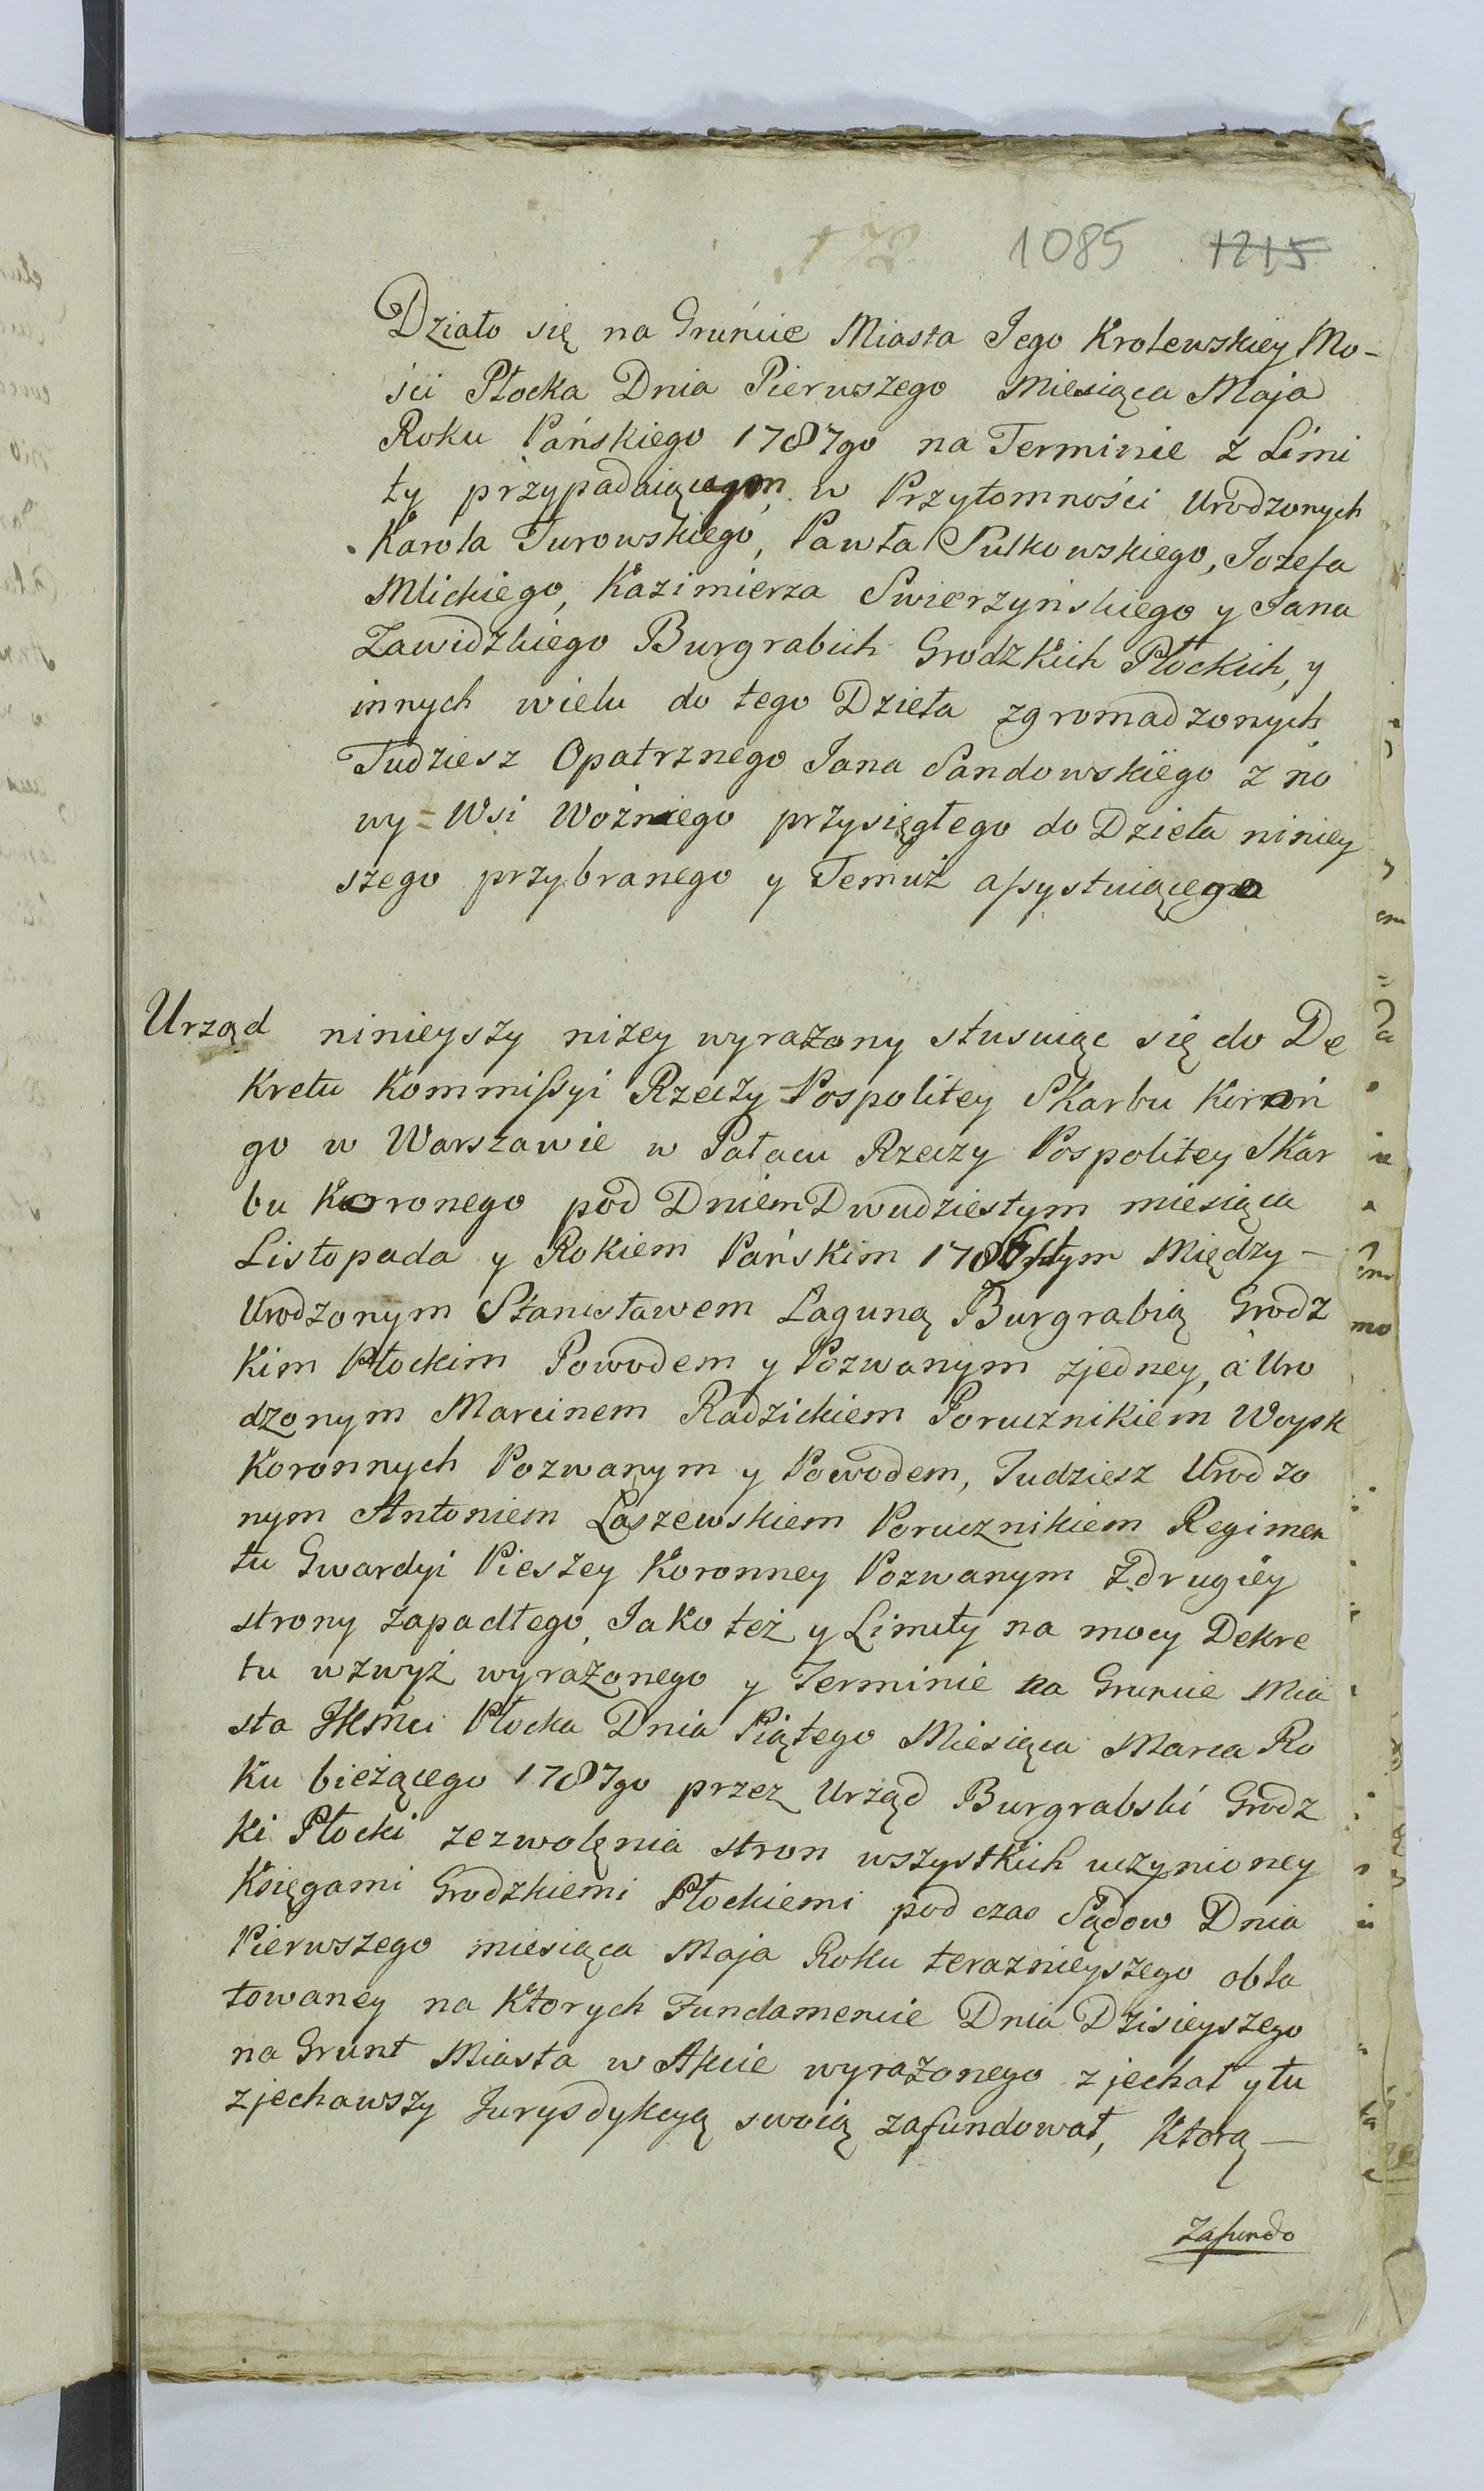 1085 1215
Działo się na Gruńcie Miasta Jego Krolewskiey Mo-
ści Płocka Dnia Pierwszego Miesiąca Maja
Roku Pańskiego 1787go na Terminie z Limi
ty przypadaiącym, w Przytomności Urodzonych
Karola Turowskiego, Pawła Sulkowskiego, Jozefa
Mlickiego, Kazimierza Swierzyńskiego y Jana
Zawidzkiego Burgrabich Grodzkich Płockich, y
innych wielu do tego Dzieła zgromadzonych
Tudziesz Opatrznego Jana Sandowskiego z no
wy = Wsi Woźniego przysięgłego do Dzieła niniey
szego przybranego y Temuż assystuiącego
Urząd ninieyszy niżey wyrażony stusuiąc się do De
kretu Kommissyi Rzeczy Pospolitey Skarbu Koroń
go w Warszawie w Pałacu Rzeczy Pospolitey Skar
bu Koronego pod Dniem Dwudziestym miesiąca
Listopada y Rokiem Pańskim 1786stym Między -
Urodzonym Stanisławem Laguną Burgrabią Grodz
kim Płockim Powodem y Pozwanym zjedney, a Uro
dzonym Marcinem Radzickiem Porucznikiem Woysk
Koronnych Pozwanym y Powodem, Tudziesz Urodzo
nym Antoniem Łaszewskiem Porucznikiem Regimen
tu Gwardyi Pieszey Koronney Pozwanym z drugiey
strony zapadłego, Jako też y Limity na mocy Dekre
tu wzwyż wyrażonego y Terminie na Gruncie Mia
sta JKMci Płocka Dnia Piątego Miesiąca Marca Ro
ku bieżącego 1787go przez Urząd Burgrabski Grodz
ki Płocki zezwolenia stron wszystkich uczynioney
Księgami Grodzkiemi Płockiemi pod czas Sądow Dnia
Pierwszego miesiąca Maja Roku terazniejszego obla
towaney na Ktorych Fundamencie Dnia Dzisieyszego
na Grunt Miasta w Akcie wyrażonego zjechał y tu
zjechawszy Jurysdykcyą swoią zafundował, Ktorą -
Zafundo